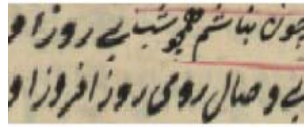 چون بناشم همچو شب بی روز او
بی وصال رومی روز افروز او